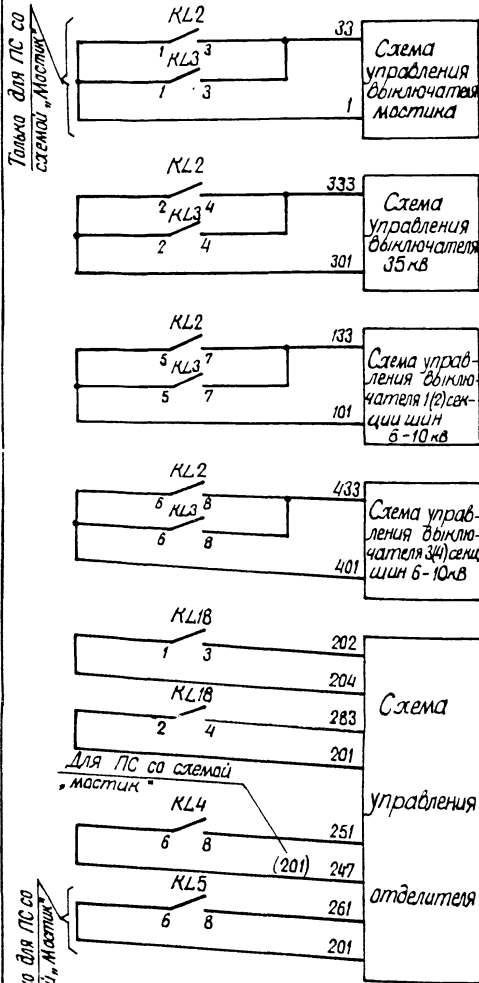 Только для ПС со
схемой „Мостик"
KL2
1 3
KL3
1 3
33
1
Схема
управления
выключателя
мостика
KL2
2 4
KL3
2 4
333
301
Схема
управления
выключателя
35 кв
KL2
5 7
KL3
5 7
133
101
Схема управ-
ления выклю-
чателя 1(2) сек-
ции шин
6-10 кв
KL2
6 8
KL3
6 8
433
401
Схема управ-
ления выклю-
чателя 3(4) секц
шин 6-10кв
KL18
1 3
202
204
KL18
2 4
283
201
Для ПС со схемой
„мостик"
KL4
6 8
251
(201) 247
KL5
6 8
261
201
Схема
управления
отделителя
для ПС со
„Мостик"